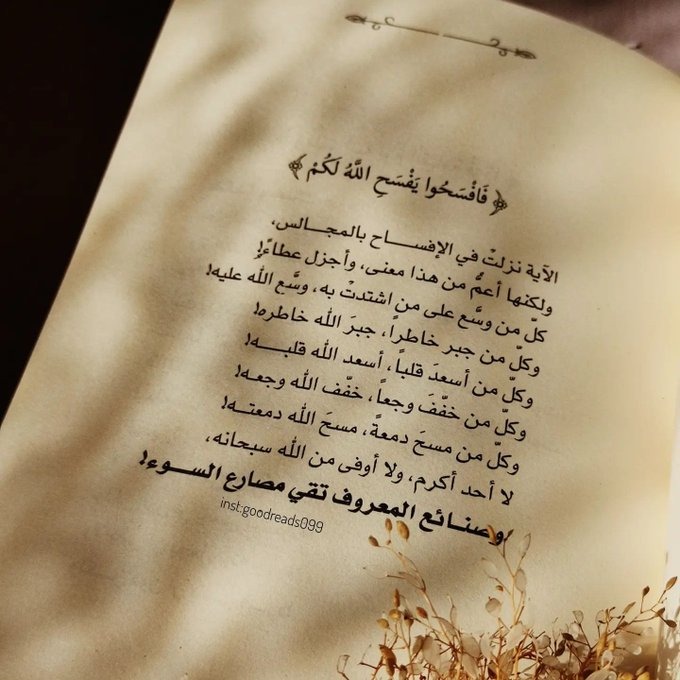 ﴿ فَافْسَحُوا يَفْسَحِ اللَّهُ لَكُمْ ﴾
الآية نزلتْ في الإفســـاح بالمجـالس،
ولكنها أعمُّ من هذا معنى، وأجزل عطاءً!
كلّ من وسَّع على من اشتدتْ به، وسَّع الله عليه!
وكلّ من جبر خاطراً، جبرَ الله خاطره!
وكلّ من أسعدَ قلباً، أسعد الله قلبـــه!
وكلّ من خفّفَ وجعاً، خفّف الله وجعه!
وكلّ من مسحَ دمعةً، مسحَ الله دمعتـه!
لا أحد أكرم، ولا أوفى من الله سبحانه،
وصنـائع المعروف تقي مصارع الســوء!
inst:goodreads099